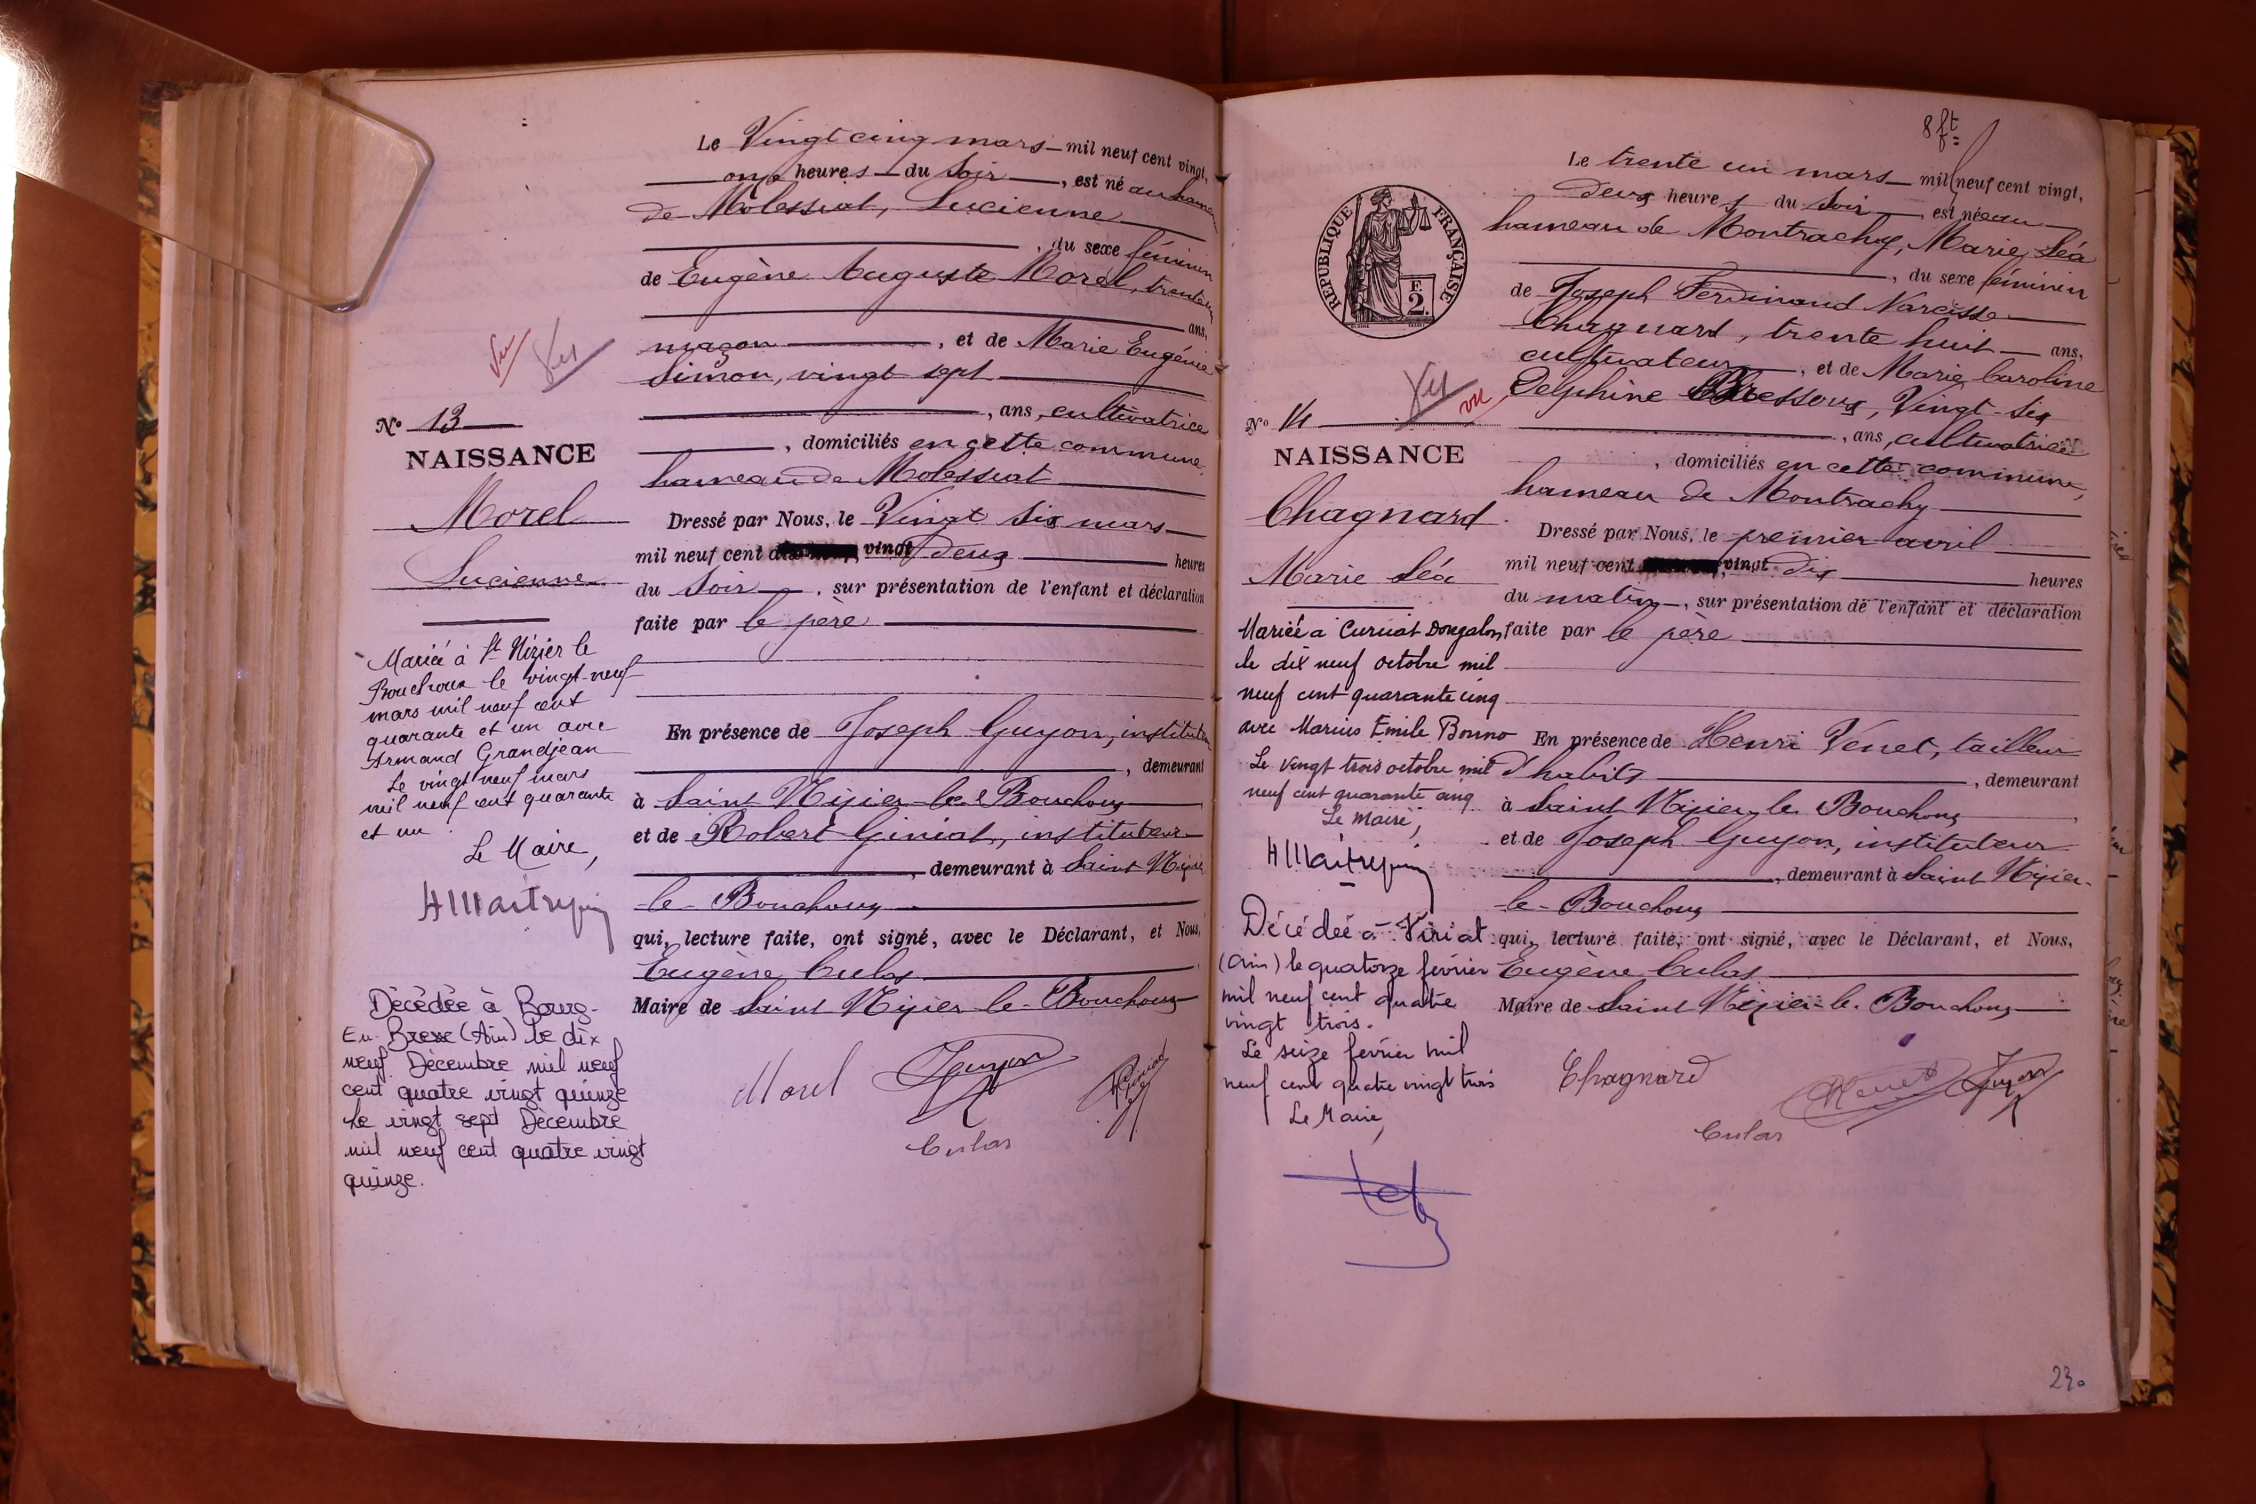 Le Vingt cinq mars mil neuf cent vingt,
onze heures du soir, est né au hameau
de Molessiat, Lucienne
, du sexe féminin
de Eugène Auguste Morel,
ans,
maçon, et de Marie Eugénie
Simon, vingt sept
, ans, cultivatrice
, domiciliés en cette commune,
hameau de Molessiat
Dressé par Nous, le Vingt six mars
mil neuf cent vingt deux heures
du soir, sur présentation de l'enfant et déclaration
faite par le père
En présence de Joseph Guyon, instituteur
, demeurant
à Saint Nizier-le-Bouchoux
et de Robert Giniat, instituteur
, demeurant à Saint Nizier
le-Bouchoux
qui, lecture faite, ont signé, avec le Déclarant, et Nous,
Eugène Culas
Maire de Saint Nizier-le-Bouchoux
Morel
Guyon
Giniat
Culas
Vu
Vu
No 13
NAISSANCE
Morel
Lucienne
Mariée à St Nizier le
Bouchoux le vingt-neuf
mars mil neuf cent
quarante et un avec
Armand Grandjean
Le vingt neuf mars
mil neuf cent quarante
et un.
Le Maire,
Décédée à Bourg-
En-Bresse (Ain) le dix
neuf Décembre mil neuf
cent quatre vingt quinze
Le vingt sept Décembre
mil neuf cent quatre vingt
quinze.
8 ft
RÉPUBLIQUE FRANÇAISE
F.
2.
Le trente un mars mil neuf cent vingt,
deux heures du soir, est née au
hameau de Montrachy, Marie Léa
, du sexe féminin
de Joseph Ferdinand Narcisse
Chagnard, trente huit ans,
cultivateur, et de Marie Caroline
Delphine Bressoux, Vingt-six
, ans, cultivatrice
, domiciliés en cette commune,
hameau de Montrachy
Dressé par Nous, le premier avril
mil neuf cent vingt dix heures
du matin, sur présentation de l'enfant et déclaration
faite par le père
En présence de Henri Venet, tailleur
d'habits, demeurant
à Saint Nizier le Bouchoux,
et de Joseph Guyon, instituteur
, demeurant à Saint Nizier-
le-Bouchoux
qui, lecture faite, ont signé, avec le Déclarant, et Nous,
Eugène Culas
Maire de Saint Nizier-le-Bouchoux
Chagnard
Venet
Guyon
Culas
Vu
vu
No 14
NAISSANCE
Chagnard
Marie Léa
Mariée à Curciat Dongalon
le dix neuf octobre mil
neuf cent quarante cinq
avec Marius Emile Bonno
Le vingt trois octobre mil
neuf cent quarante cinq
Le Maire,
Décédée à Viriat
(Ain) le quatorze février
mil neuf cent quatre
vingt trois.
Le seize février mil
neuf cent quatre vingt trois
Le Maire,
230